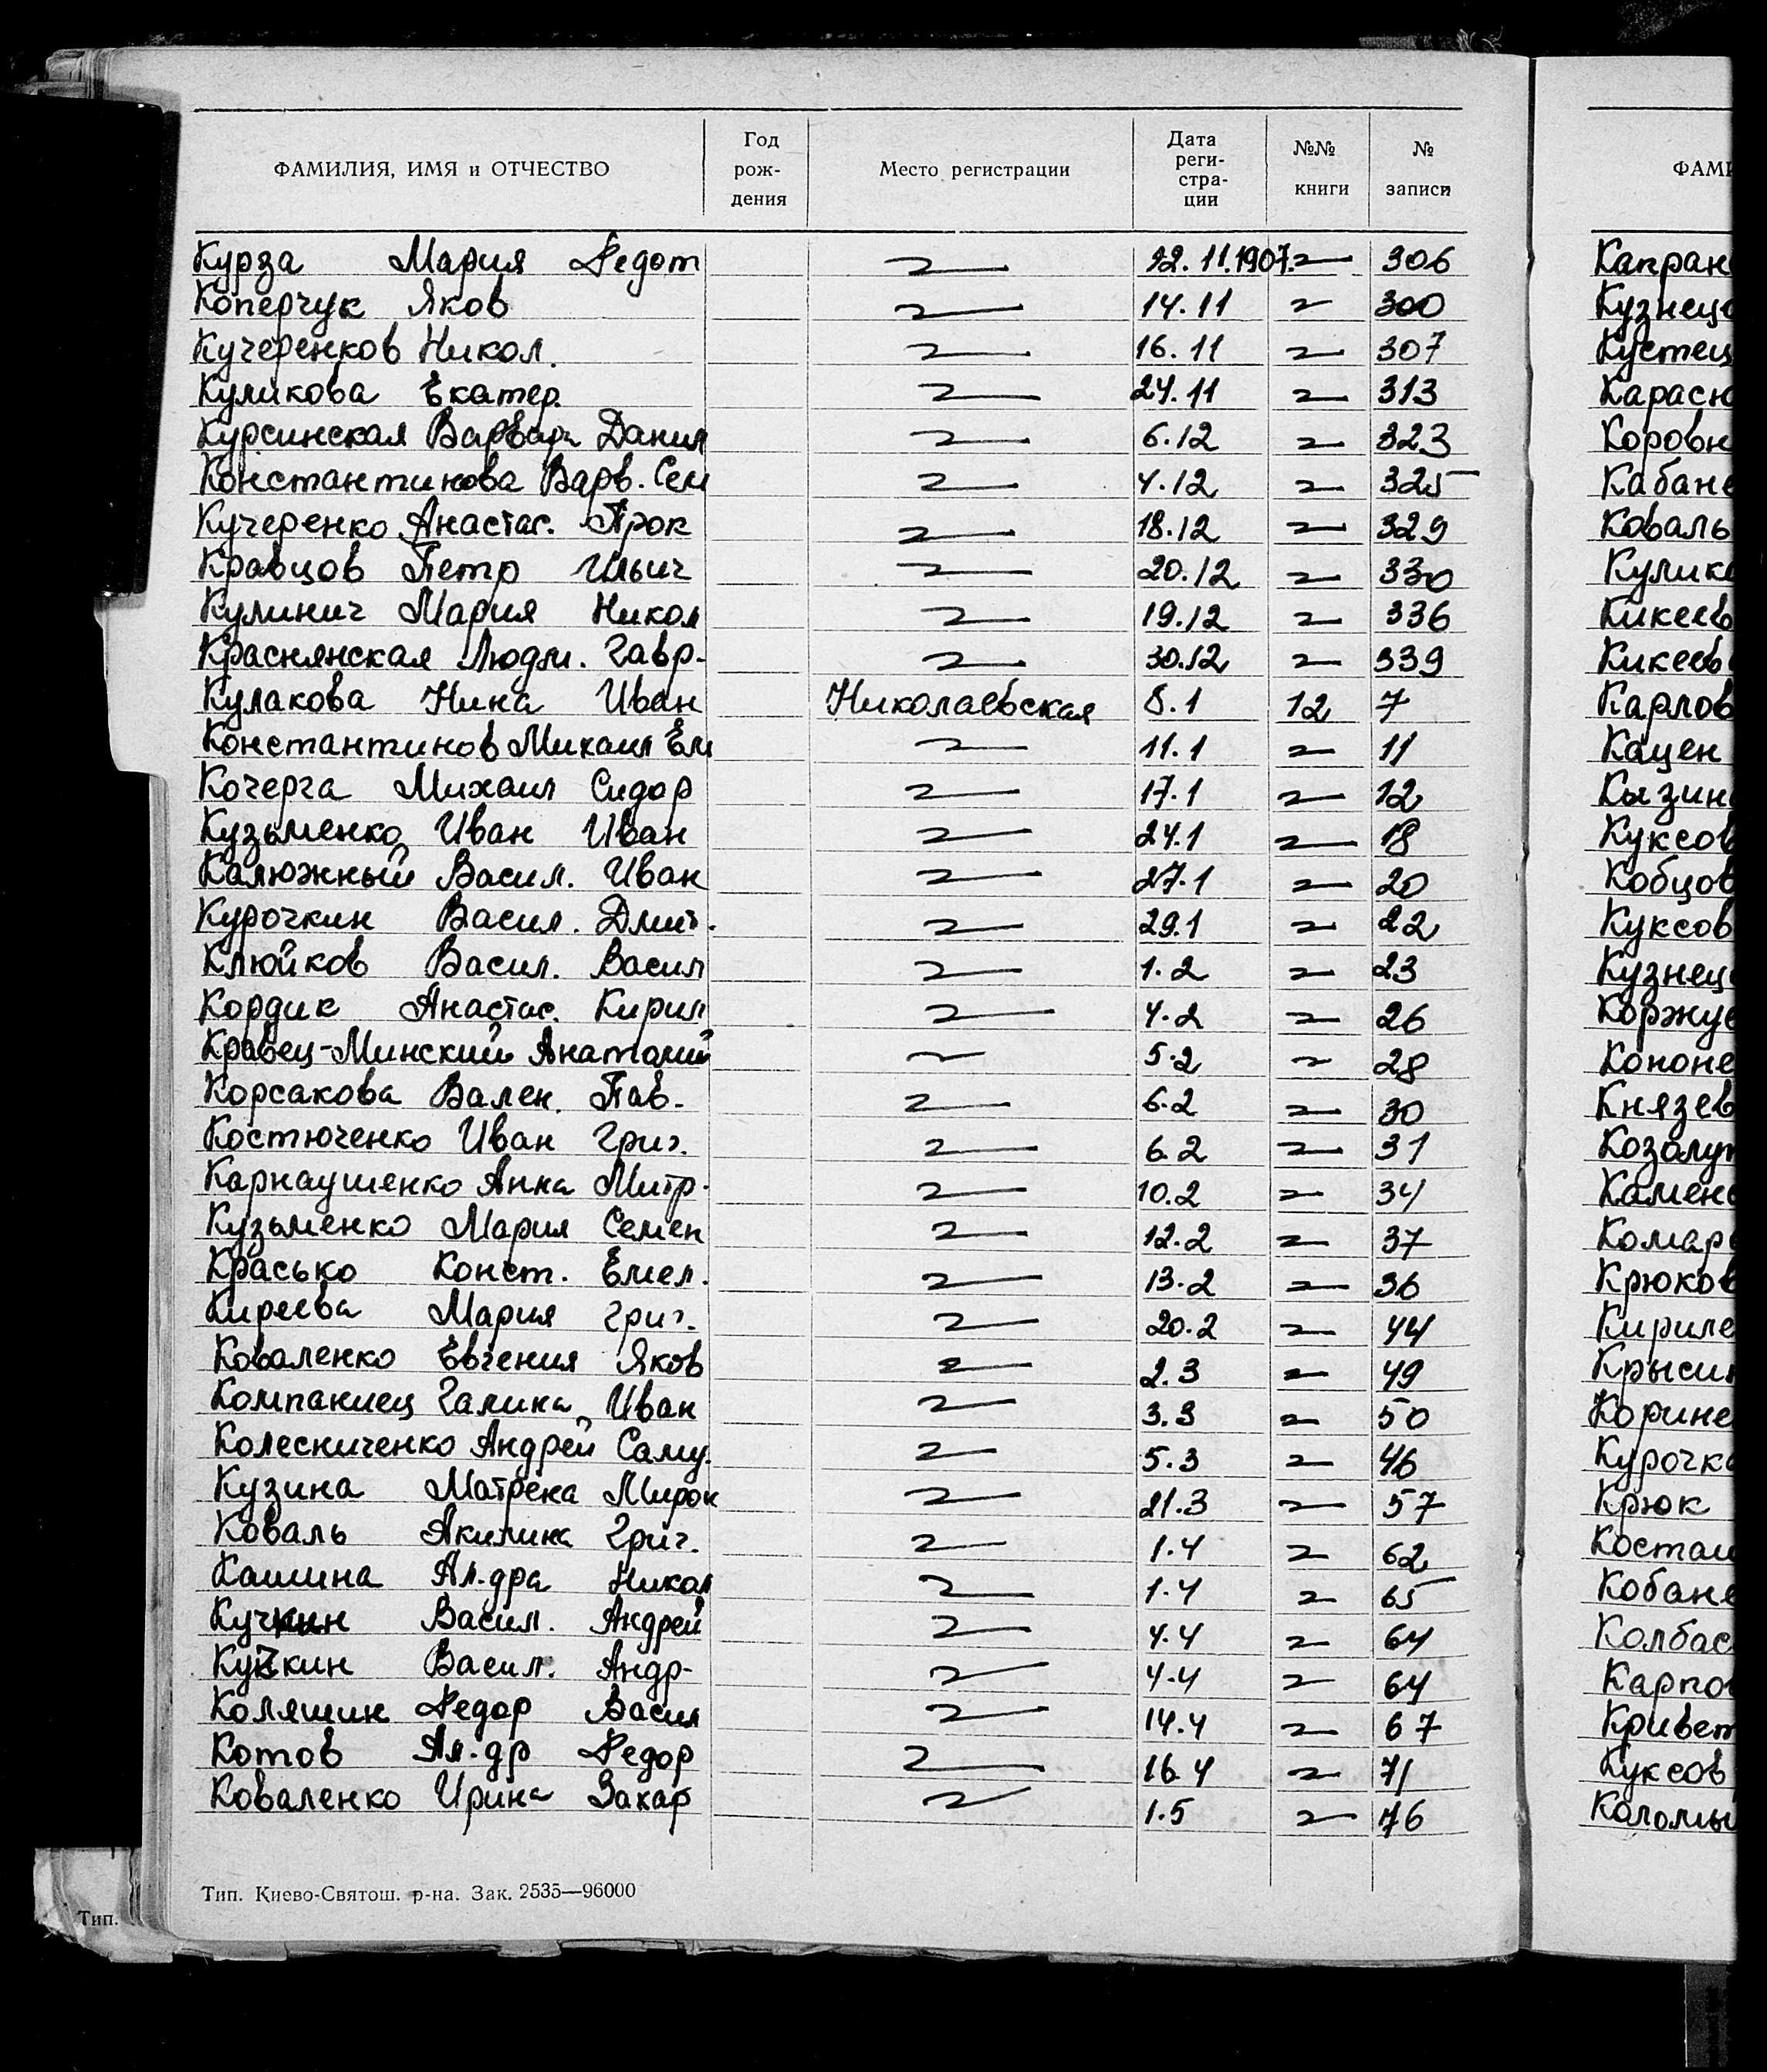 ФАМИЛИЯ, ИМЯ и ОТЧЕСТВО Год рож- дения Место регистрации Дата реги- стра- ции №№ книги № записи ФАМИ
Курза Мария Федот 22.11.1907. 306 Капран
Коперчук Яков 14.11 300 Кузнецо
Кучеренков Никол. 16.11 307 Кустец
Куликова Екатер. 24.11 313 Карасю
Курсинская Варвара Данил 6.12 323 Коровн
Константинова Варв. Сем 4.12 325 Кабане
Кучеренко Анастас. Прок 18.12 329 Коваль
Кравцов Петр Ильич 20.12 330 Кулико
Кулинич Мария Никол 19.12 336 Кикеев
Краснянская Людм. Гавр. 30.12 339 Кикеев
Кулакова Нина Иван Николаевская 8.1 12 7 Карлов
Константинов Михаил Ем 11.1 11 Кацен
Кочерга Михаил Сидор 17.1 12 Кызин
Кузьменко Иван Иван 24.1 18 Куксов
Калюжный Васил. Иван 27.1 20 Кобцов
Курочкин Васил. Дмит. 29.1 22 Куксов
Клюйков Васил. Васил 1.2 23 Кузнец
Кордик Анастас. Кирил 4.2 26 Коржуе
Кравец-Минский Анатолий 5.2 28 Кононе
Корсакова Вален. Пав. 6.2 30 Князев
Костюченко Иван Григ. 6.2 31 Козолуп
Карнаушенко Анна Митр. 10.2 34 Камен
Кузьменко Мария Семен 12.2 37 Комар
Красько Конст. Емел. 13.2 36 Крюков
Киреева Мария Григ. 20.2 44 Кириле
Коваленко Евгения Яков 2.3 49 Крысин
Компаниец Галина Иван 3.3 50 Корине
Колесниченко Андрей Саму. 5.3 46 Курочк
Кузина Матрёна Мирон 21.3 57 Крюк
Коваль Акилина Григ. 1.4 62 Костан
Кашина Ал.дра Никол 1.4 65 Кобане
Кучкин Васил. Андрей 4.4 64 Колбас
Кучкин Васил. Андр- 4.4 64 Карпо
Коляшин Федор Васил 14.4 67 Кривет
Котов Ал.др Федор 16.4 71 Куксов
Коваленко Ирина Захар 1.5 76 Коломы
Тип. Киево-Святош. р-на. Зак. 2535—96000
Тип.